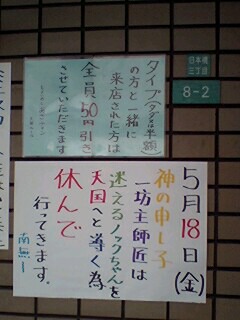 タイプ(タダは半額)
の方と一緒に
来店された方は
全員50円引き
させていただきます
日本橋
三丁目
8-2
5月18日(金)
神の申し子
一坊主師匠は
迷えるノックちゃんを
天国へと導く為
休んで
行ってきます。